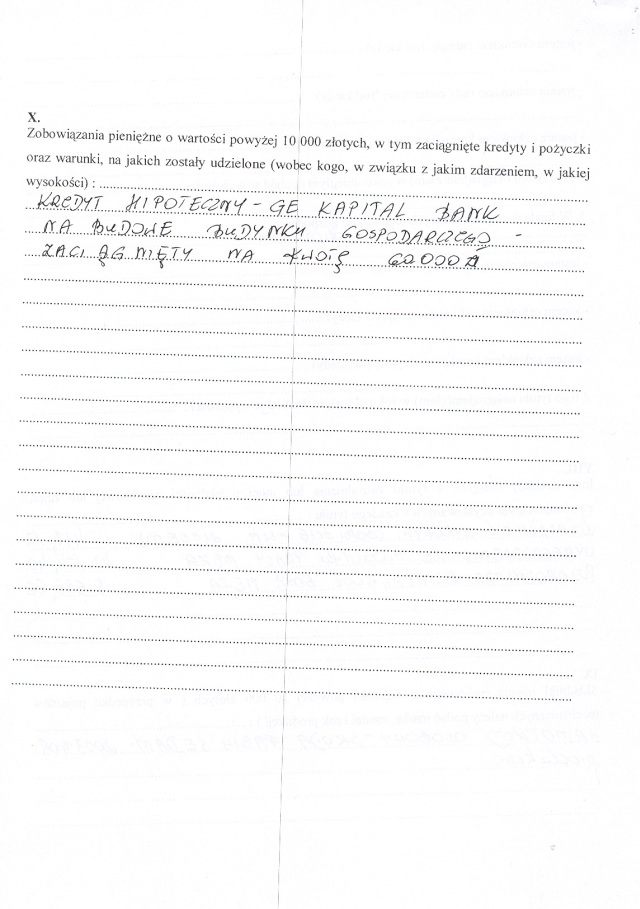 X.
Zobowiązania pieniężne o wartości powyżej 10 000 złotych, w tym zaciągnięte kredyty i pożyczki
oraz warunki, na jakich zostały udzielone (wobec kogo, w związku z jakim zdarzeniem, w jakiej
wysokości) :
KREDYT HIPOTECZNY - GE KAPITAL BANK
NA BUDOWE BUDYNKU GOSPODARCZEGO -
ZACIĄGNIĘTY NA KWOTĘ 60 000 zł